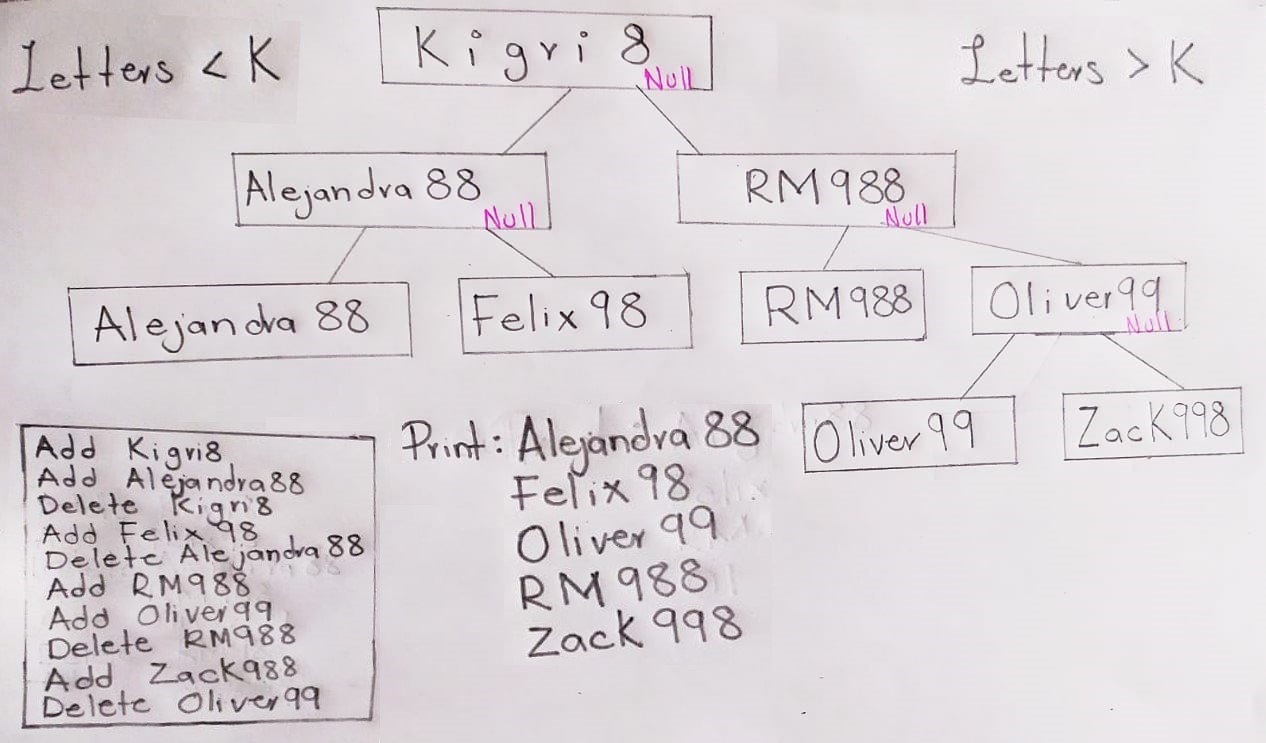 Letters < K
Kigri 8
Null
Letters > K
Alejandra 88
Null
RM988
Null
Alejandra 88
Felix 98
RM988
Oliver99
Null
Oliver 99
Zack998
Add Kigri8
Add Alejandra88
Delete Kigri8
Add Felix 98
Delete Alejandra 88
Add RM988
Add Oliver99
Delete RM988
Add Zack988
Delete Oliver99
Print: Alejandra 88
Felix 98
Oliver 99
RM 988
Zack 998